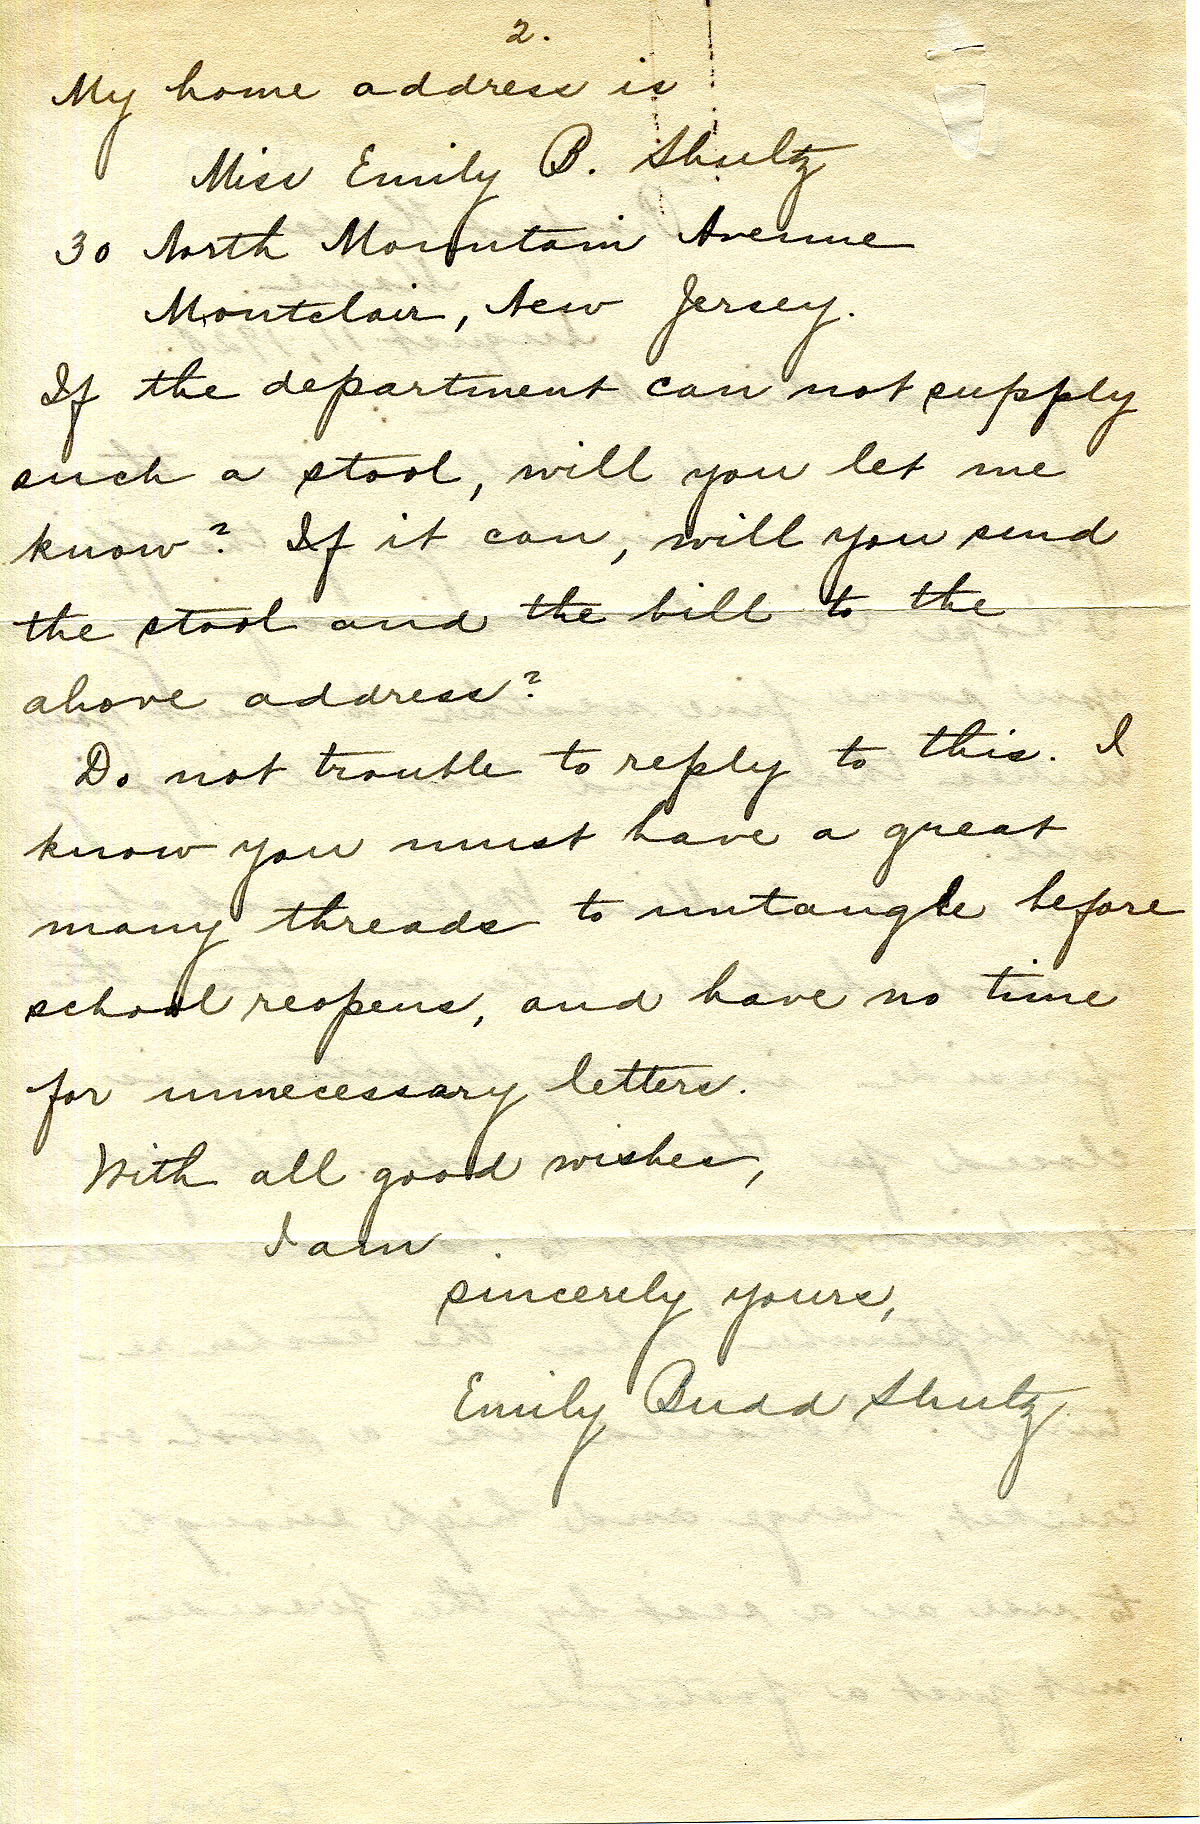 2.
My home address is
Miss Emily B. Shultz
30 North Mountain Avenue
Montclair, New Jersey.
If the department can not supply
such a stool, will you let me
know? If it can, will you send
the stool and the bill to the
above address?
Do not trouble to reply to this. I
know you must have a great
many threads to untangle before
school reopens, and have no time
for unnecessary letters.
With all good wishes,
I am
sincerely yours,
Emily Budd Shultz